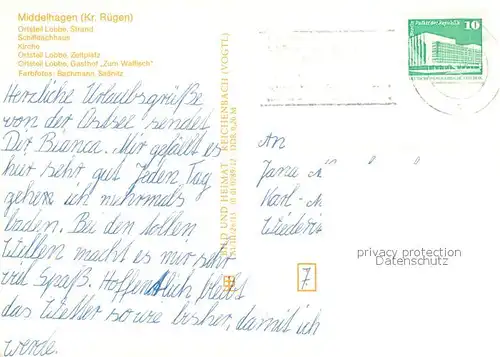 Middelhagen (Kr. Rügen)
Ortsteil Lobbe, Strand
Schifferschhaus
Kirche
Ortsteil Lobbe, Zeltplatz
Ortsteil Lobbe, Gasthof „Zum Walfisch"
Farbfotos: Bachmann, Saßnitz
Herzliche Urlaubsgrüße
von der Ostsee sendet
Dir Bianca. Mir gefällt es
hier sehr gut. Jeden Tag
gehen ich mehrmals
baden. Bei den tollen
Wellen macht es mir sehr
viel Spaß. Hoffentlich bleibt
das Wetter so wie bisher, damit ich
werde.
BILD UND HEIMAT REICHENBACH (VOGTL)
10
An
Jana
Karl-
privacy protection
Datenschutz
7